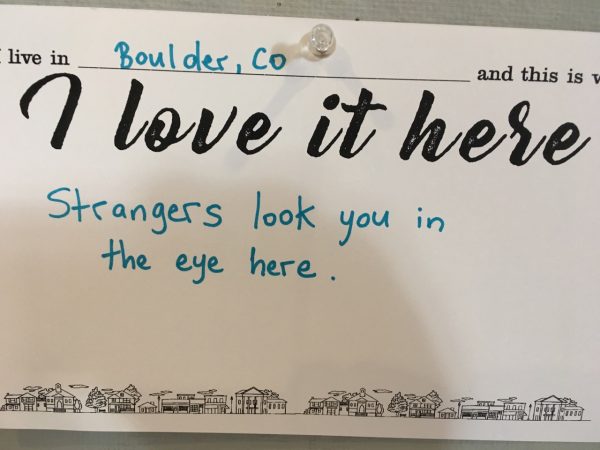 I live in Boulder, Co and this is w
I love it here
Strangers look you in
the eye here.